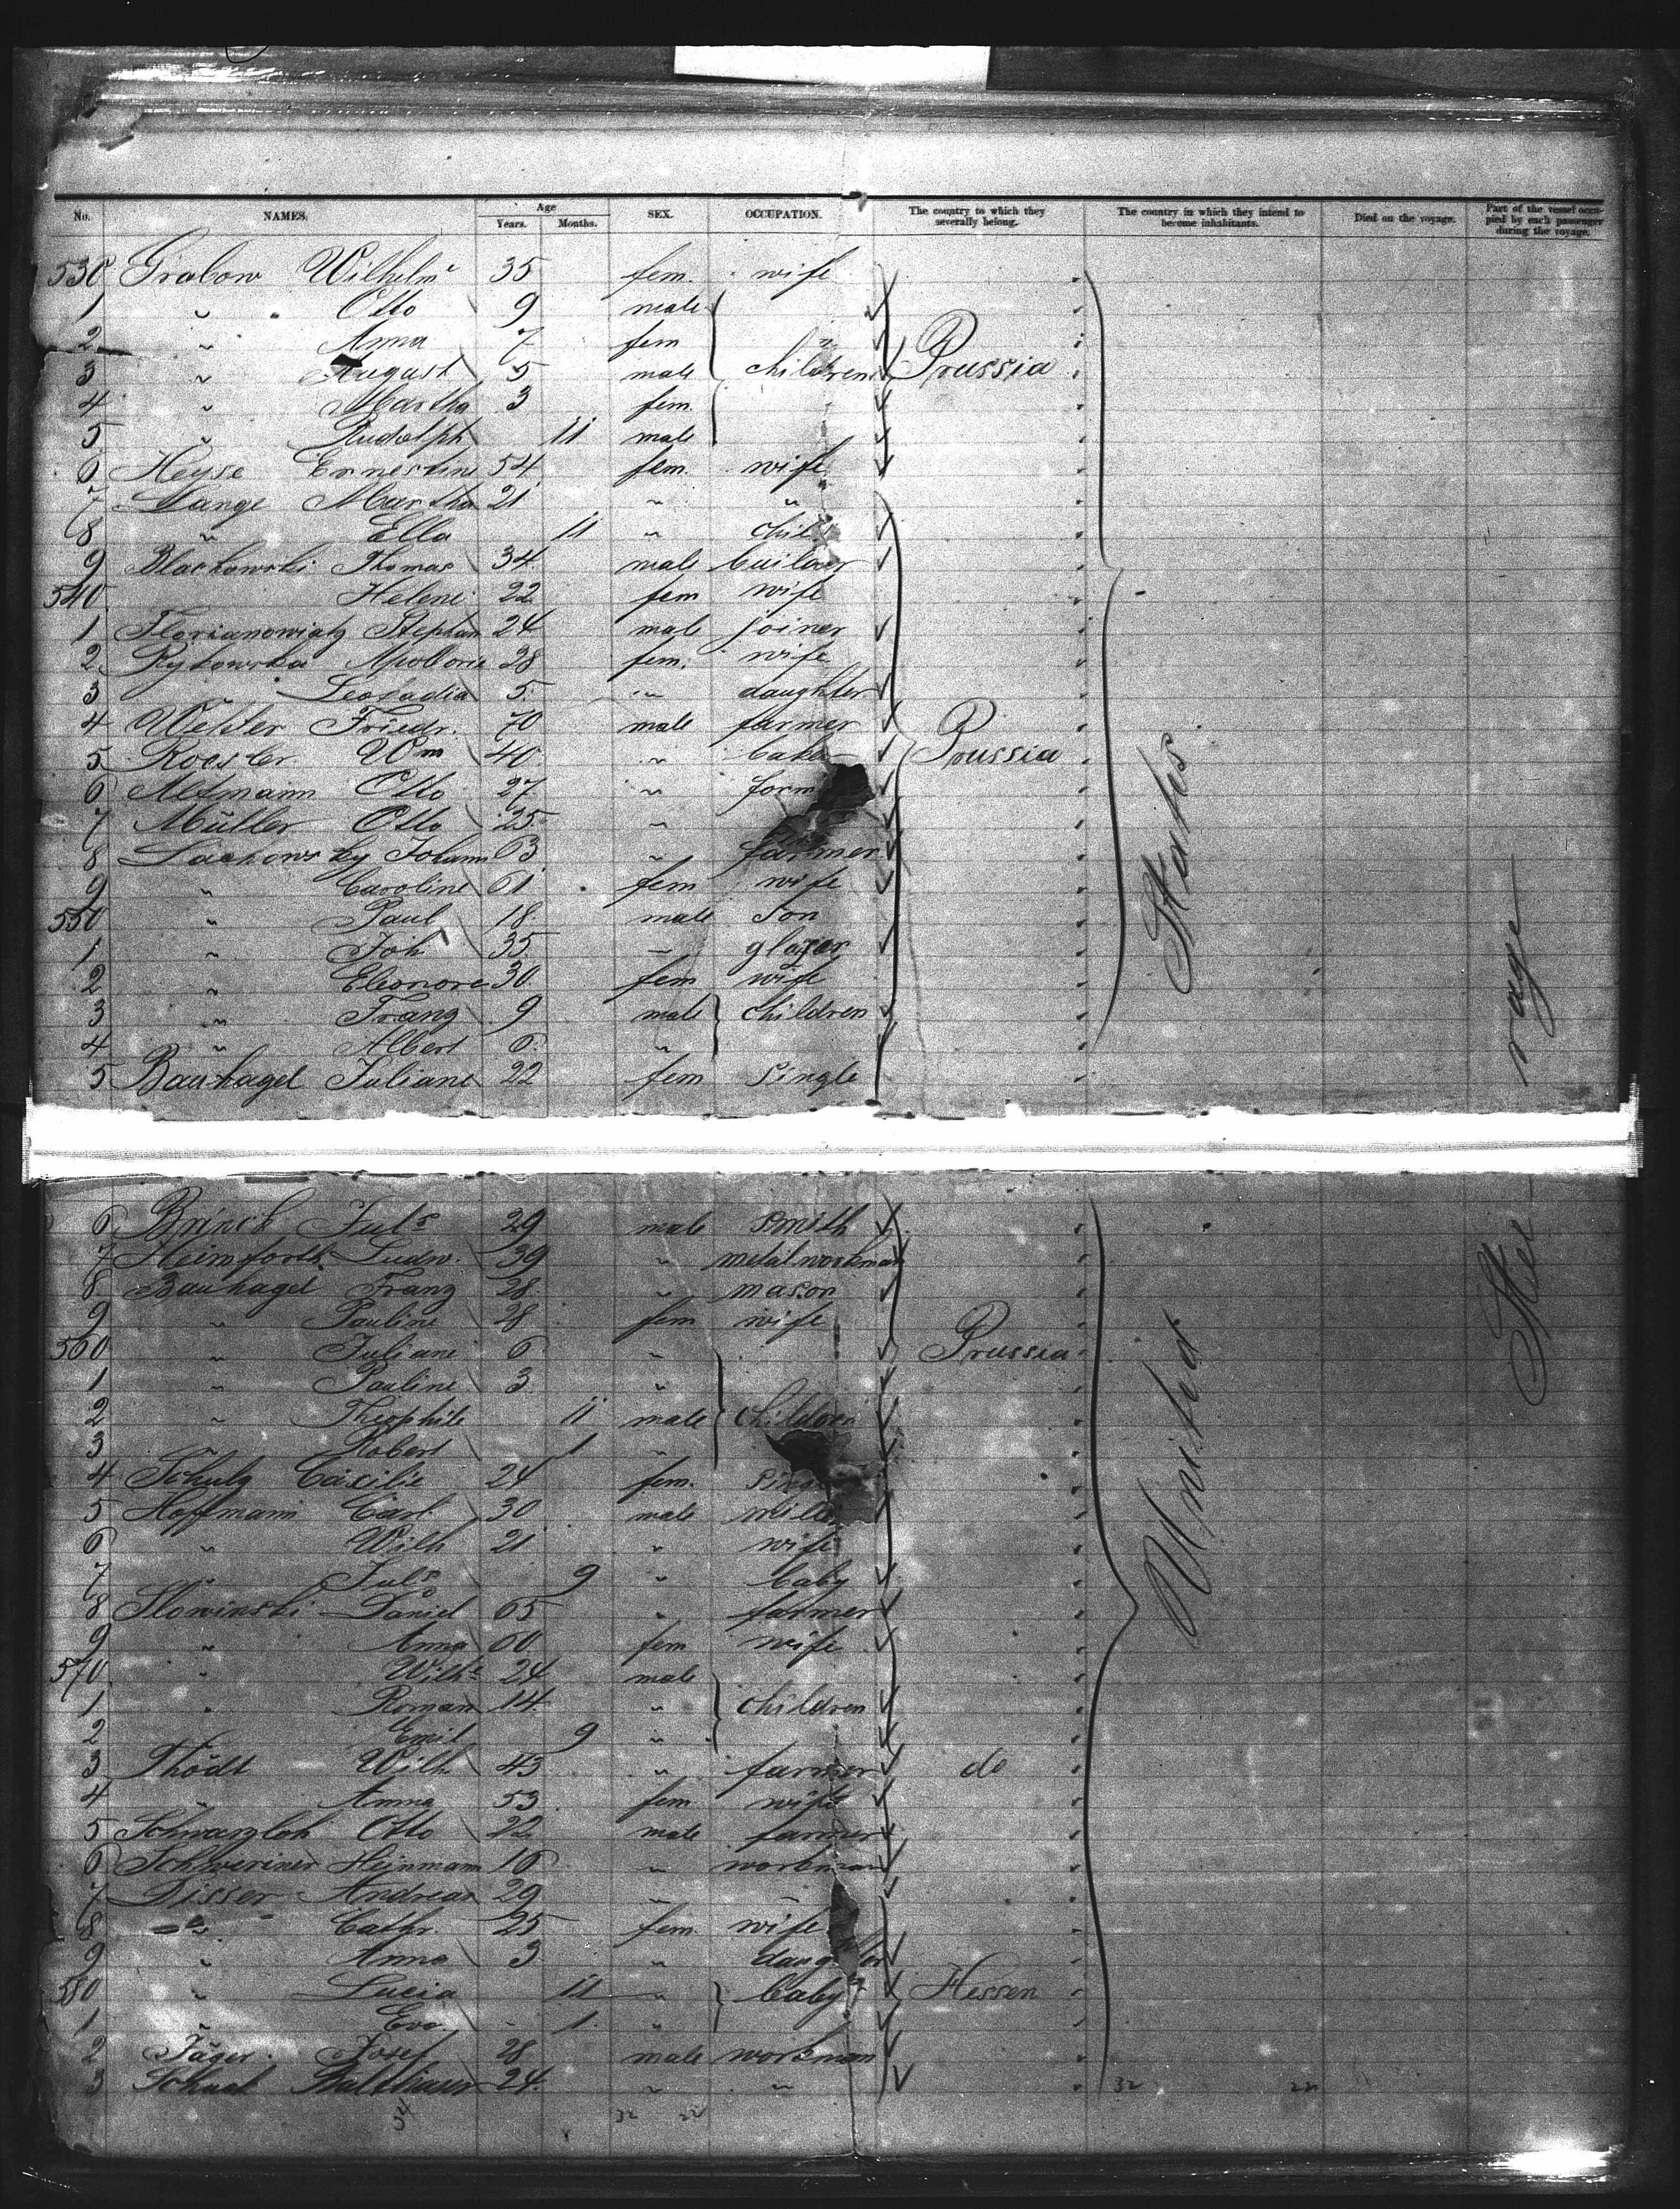 No. NAMES. Age Years. Months. SEX. OCCUPATION. The country to which they severally belong. The country in which they intend to become inhabitants. Died on the voyage. Part of the vessel occupied by each passenger during the voyage.
530 Grabow Wilhelm 35 fem. wife
1 " Otto 9 male
2 " Anna 7 fem "
3 " August 5 male children Prussia
4 " Martha 3 fem.
5 " Rudolph 11 male
6 Heyse Ernestine 54 fem. wife
7 Lange Martha 21 " "
8 " Ella 11 " child
9 Blachowski Thomas 34 male builder
540 Helene 22 fem wife
1 Florianowiatz Stephan 24 male joiner
2 Rykowska Apollonie 28 fem. wife
3 " Leokadia 5 " daughter
4 Wetter Friedr. 70 male farmer
5 Roesler Wm 40 " baker Prussia
6 Altmann Otto 27 " form
7 Müller Otto 25 "
8 Lachowsky Johann 63 " farmer
9 " Caroline 61 fem wife
550 " Paul 18 male son
1 " Joh 35 " glazer
2 " Eleonore 30 fem wife
3 " Franz 9 male children
4 " Albert 6 "
5 Bauhagel Juliane 22 fem single
6 Brinck Juls 29 male smith
7 Heimforth Ludw. 39 " metal workman
8 Bauhagel Franz 28 " mason
9 " Pauline 28 fem wife
560 " Juliane 6 " Prussia
1 " Pauline 3 "
2 " Theophile 11 male children
3 Robert 1 "
4 Schulz Cäcilie 24 fem. sing
5 Hoffmann Carl 30 male mille
6 " Wilh 21 " wife
7 " Juls 9 " baby
8 Slowinski Daniel 65 " farmer
9 " Anna 60 fem wife
570 " Wilhe 24 male
1 " Roman 14 " children
2 Emil 9 "
3 Thödt Wilh 43 " farmer do
4 " Anna 53 fem wife
5 Schwarzloh Otto 22 male farmer
6 Schweriner Heinmann 16 " workman
7 Disser Andreas 29 " "
8 " Cathr. 25 fem. wife
9 " Anna 3 " daughter
580 " Lucia 11 " baby Hessen
1 " Eva 1 "
2 Jäger Josef 28 male workman
3 Balthasar 24 " "
32 22
34 32 22
United States
Steerage